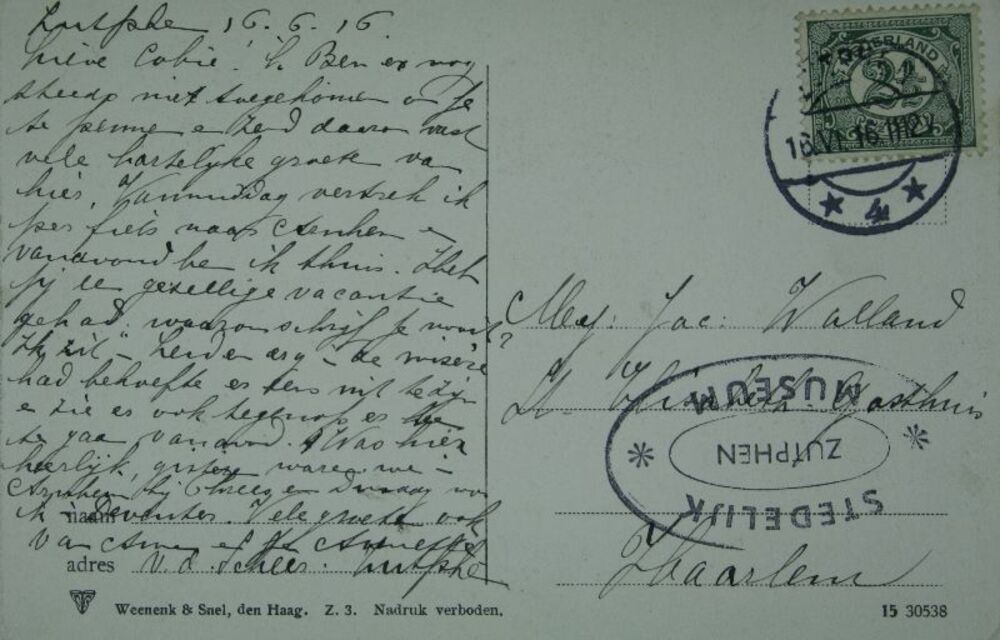 Zutphen 16.6.16.
Lieve Cobie! Ik Ben er nog
steeds niet toegekomen om je
te pennen en zend daarom vast
vele hartelijke groeten van
hier. Vanmiddag vertrek ik
per fiets naar Arnhem en
vanavond ben ik thuis. Heb
jij een gezellige vacantie
gehad, waarom schrijf je nooit?
Ik zit in leiden erg in de misère
had behoefte er eens uit te zijn
en zie er ook tegenop er
te gaan vanavond. Was hier
heerlijk, gisteren waren we in
Arnhem, bij en Dinsdag
in Deventer. Vele groeten ook
van
naam
adres v.d. Zutphen
Weenenk & Snel, den Haag. Z. 3. Nadruk verboden.
NEDERLAND
2½
16.VI.16.11-12V
4
Mej: Jac: Walland
St. Elisabeth-Gasthuis
Haarlem
STEDELIJK
ZUTPHEN
MUSEUM
15 30538